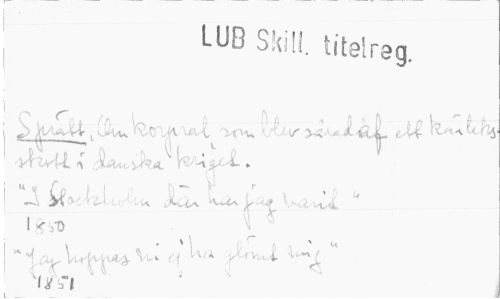 LUB Skill. titelreg.
Sprätt, Om korpral, som blev sårad af ett kärleks-
skott i danska kriget.
"I Stockholm där har jag varit"
1850
"Jag hoppas ni ej ha glömt mig"
1851